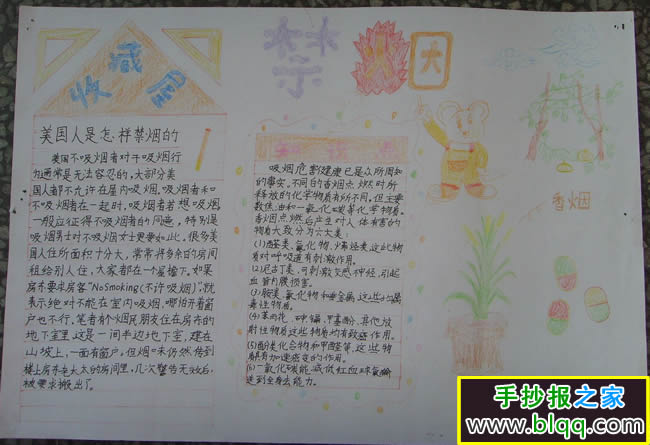 收藏屋
禁烟
火
大
美国人是怎样禁烟的
美国不吸烟者对于吸烟行
为通常是无法容忍的,大部分美
国人都不允许在屋内吸烟。吸烟者和
不吸烟者在一起时,吸烟者若想吸烟
一般应征得不吸烟者的同意,特别是
吸烟男士对不吸烟女士更要如此。很多美
国人住所面积十分大,常常将多余的房间
租给别人住,大家都在一个屋檐下。如果
房东要求房客"No Smoking(不许吸烟)",就
表示绝对不能在室内吸烟,哪怕开着窗
户也不行。笔者有个烟民朋友住在房东的
地下室里,这是一间半边地下室,建在
山坡上,一面有窗户,但烟味仍然传到
楼上房东老太太的房间里,几次警告无效后,
被要求搬出了。
吸烟危害健康已是众所周知
的事实。不同的香烟点燃时所
释放的化学物质有所不同,但主要
香烟点燃后产生对人体有害的
物质大致分为六大类:
(1)醛类、氮化物、烯烃类,这些物质
对呼吸道有刺激作用。
(2)尼古丁类,可刺激交感神经,引起
血管内膜损害。
(3)胺类、氰化物和重金属,这些均属
毒性物质。
(4)苯丙芘、砷、镉、甲基肼、其他放
射性物质这些物质均有致癌作用。
(5)酚类化合物和甲醛等,这些物
质具有加速癌变的作用。
(6)一氧化碳能减低红血球氧输
送到全身去能力。
香烟
手抄报之家
www.blqq.com